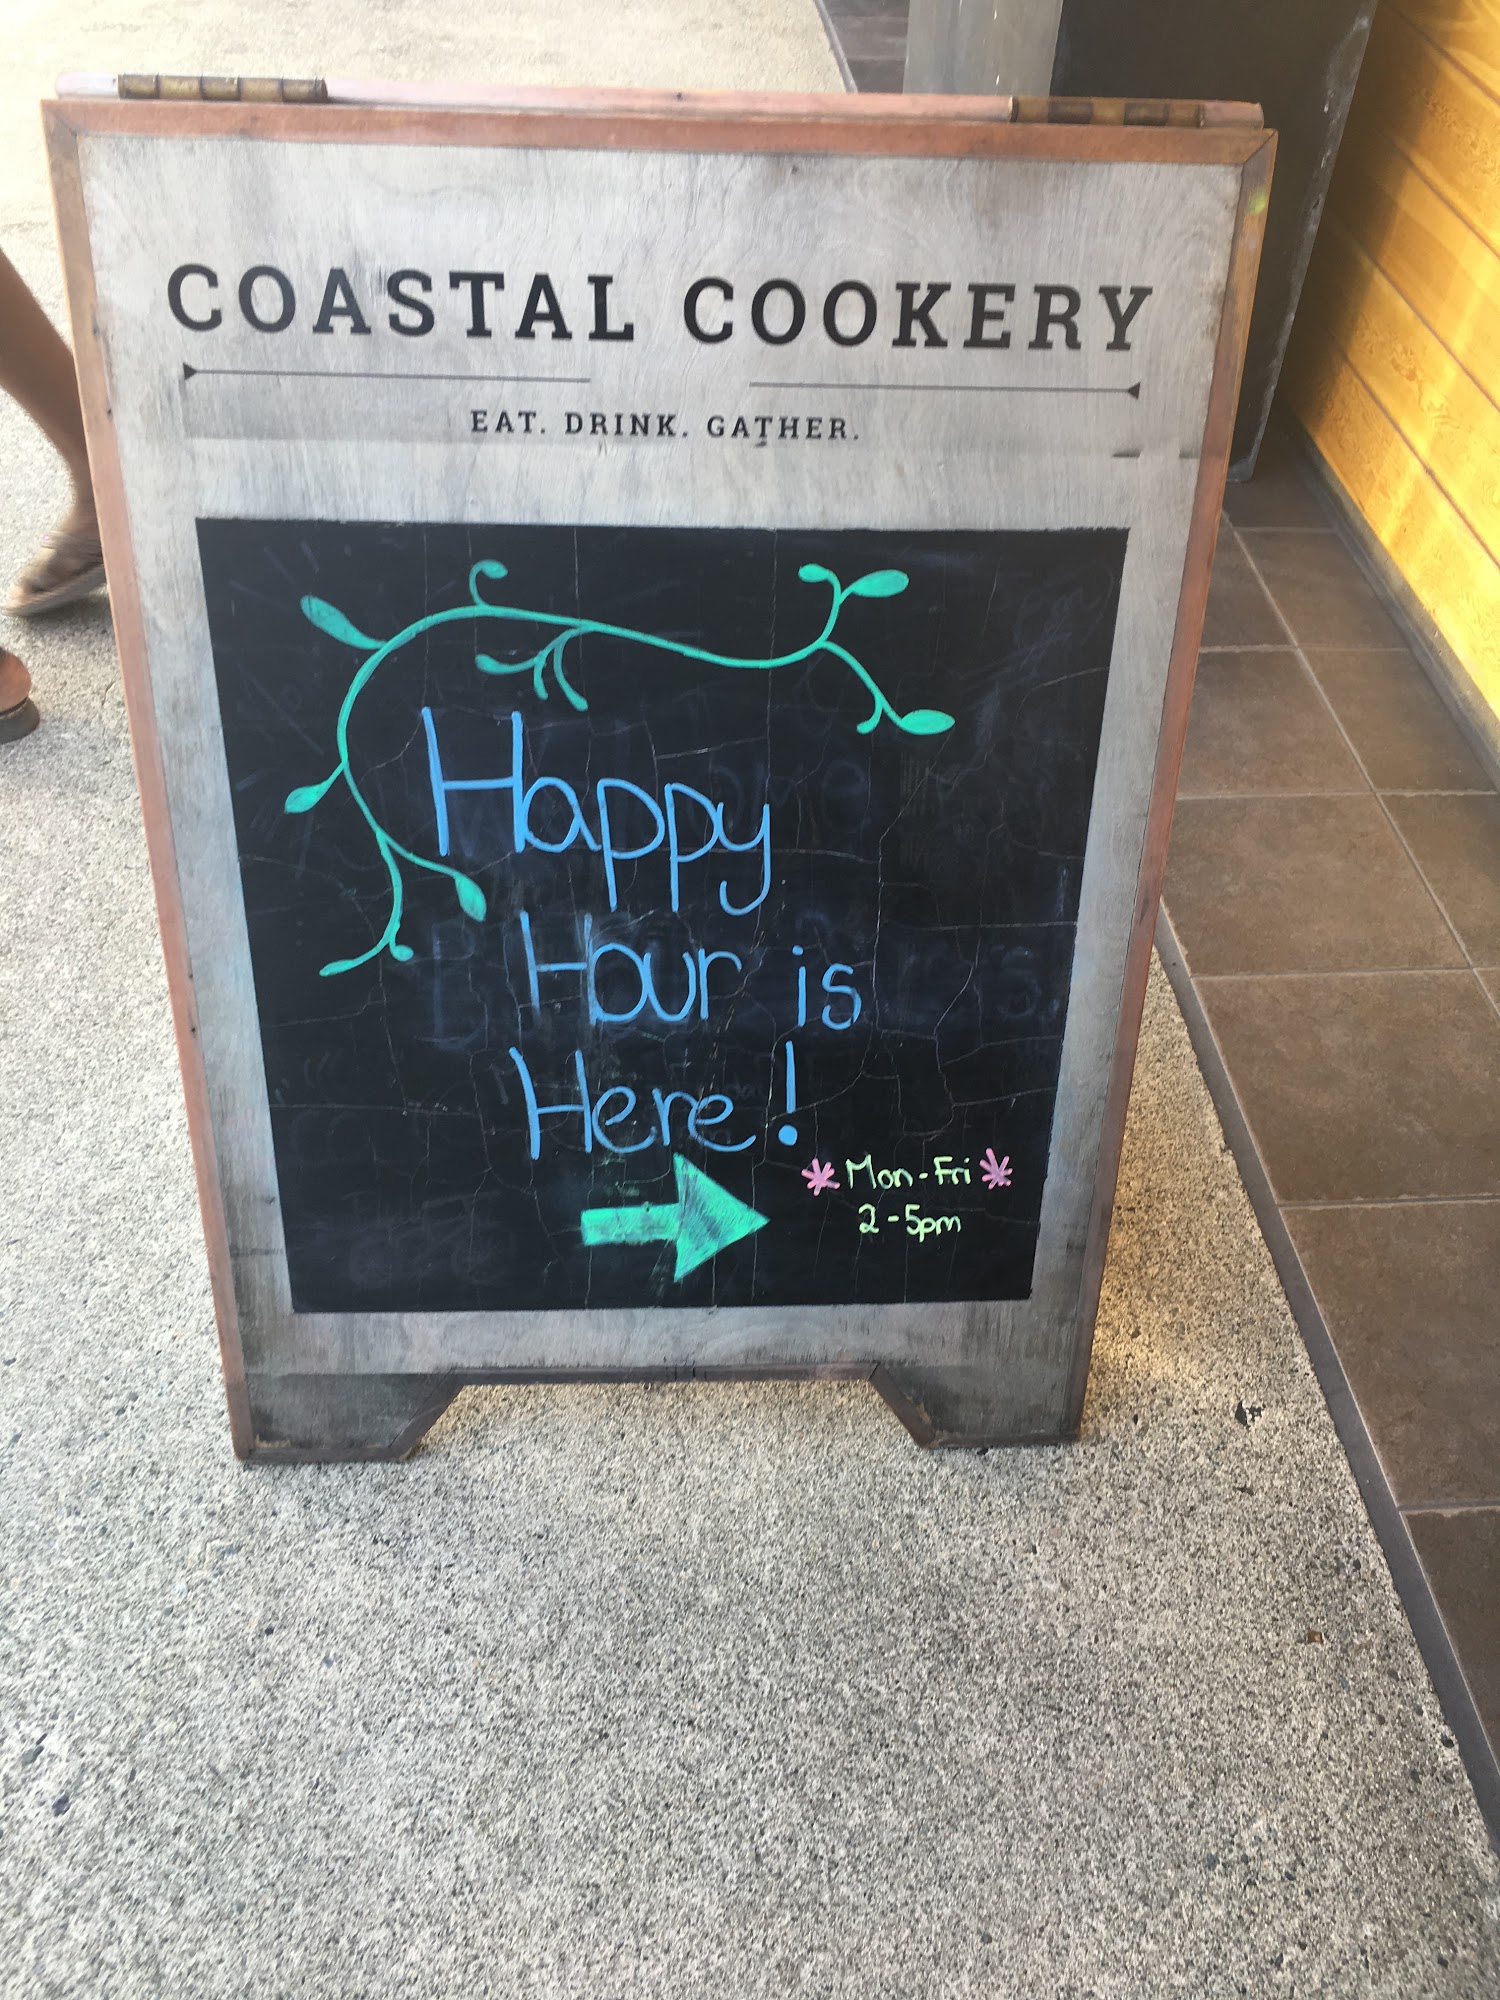 COASTAL COOKERY
EAT. DRINK. GATHER.
Happy
Hour is
Here!
Mon-Fri
2-5pm